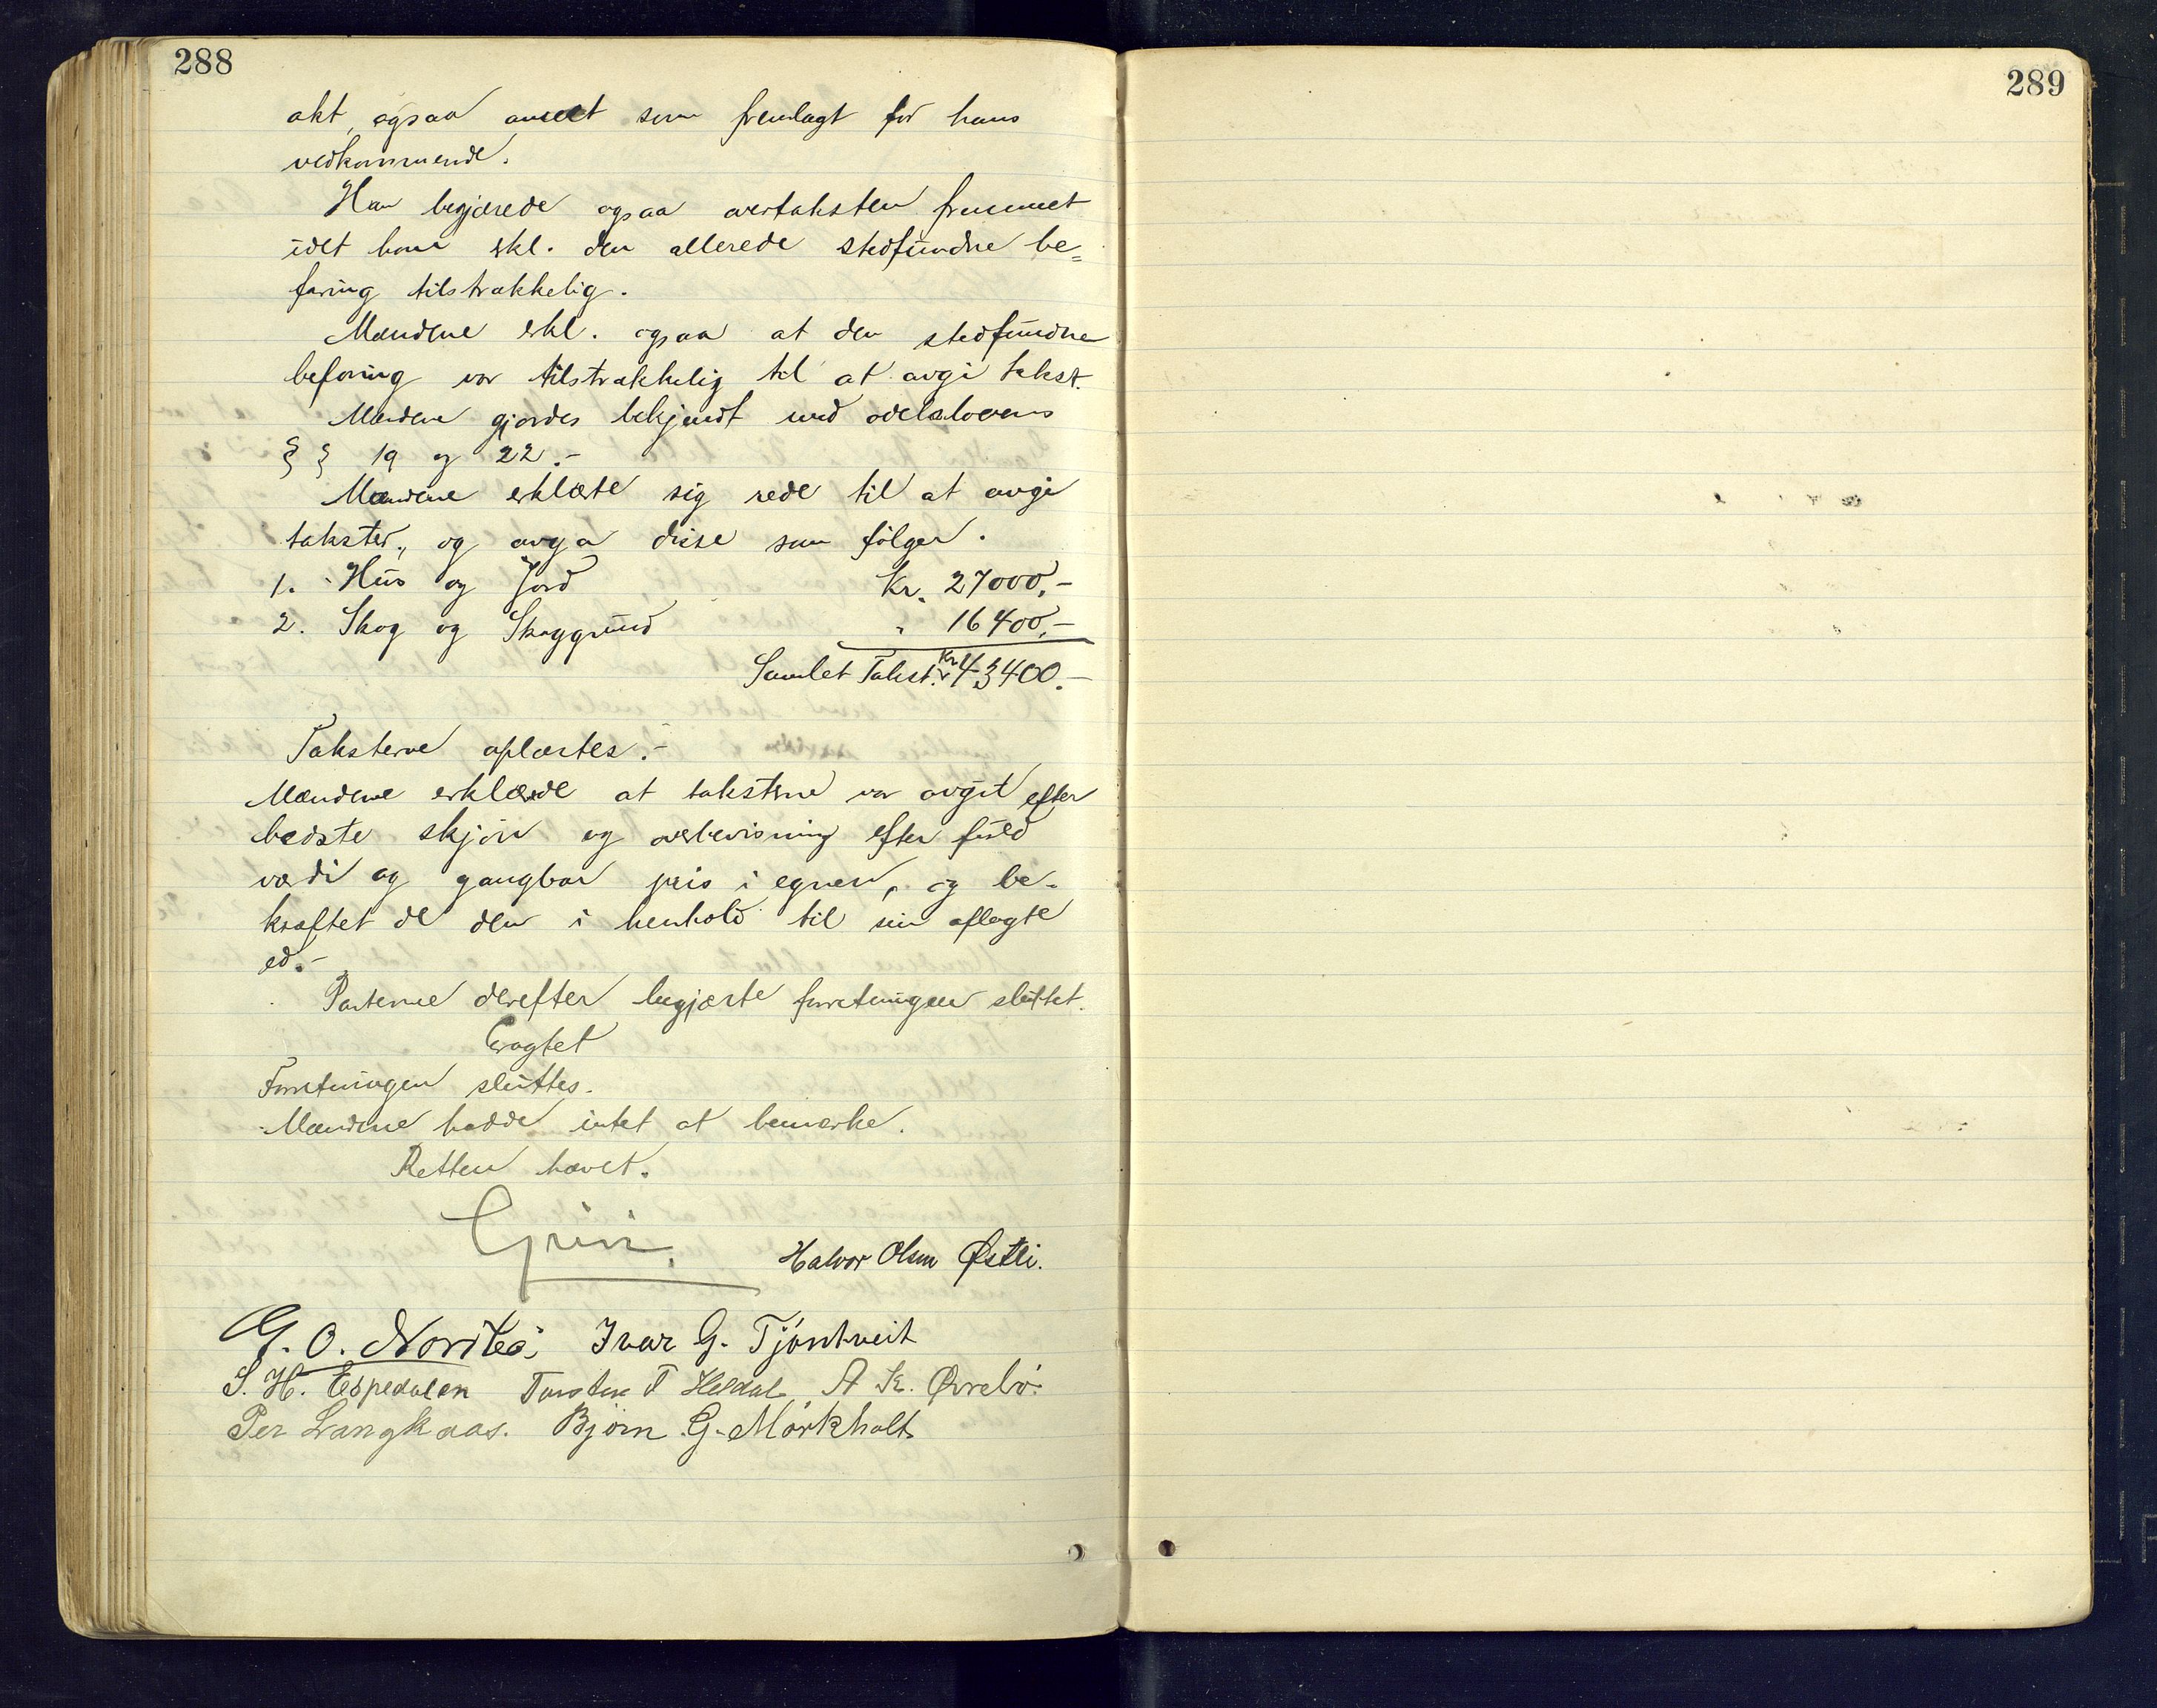 288
akt, ogsaa anseet som fremlagt for hans
vedkommende.
Han begjærede ogsaa overtaksten fremmet
idet han erkl. den allerede stedfundne be=
faring tilstrækkelig.
Mændene erkl. ogsaa at den stedfundne
befaring var tilstrækkelig til at avgi takst.
Mændene gjordes bekjendt med odelslovens
§ § 19 og 22.-
Mændene erklærte sig rede til at avgi
takster, og avga disse som følger.
1. Hus og Jord Kr. 27000.-
2. Skog og Skoggrund " 16400.-
Samlet Takst. Kr. 43400.-
Taksterne oplæstes.-
Mændene erklærede at taksterne var avgit efter
bedste skjøn og overbevisning efter fuld
værdi og gangbar pris i egnen, og be-
kræftet de den i henhold til sin aflagte
ed.-
Parterne derefter begjærte forretningen sluttet.
Eragtet
Forretningen sluttes.
Mændene hadde intet at bemerke.
Retten hævet.
Halvor Olsen Østli.
G. O. Ivar G. Tjöntveit
S. H. Espedalen T Heldal A K. Øvrebö.
Per Langkaas. Björn G. Mörkholt
289